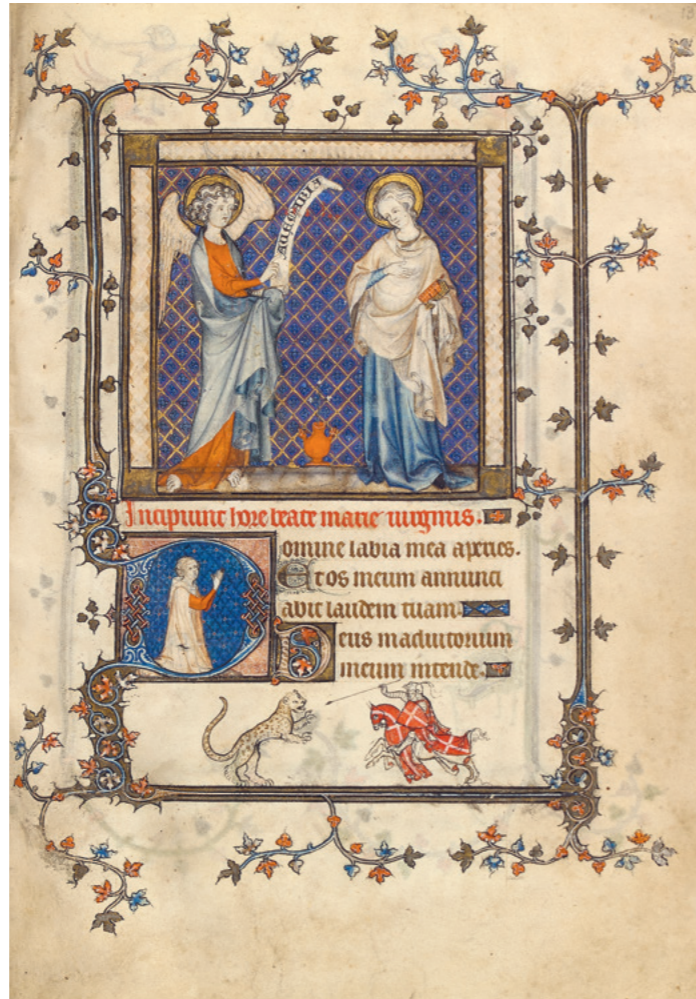 AUE MARIA
Incipiunt hore beate marie uirginis.
Domine labia mea aperies.
Et os meum annunci
abit laudem tuam.
Deus in adiutorium
meum intende.